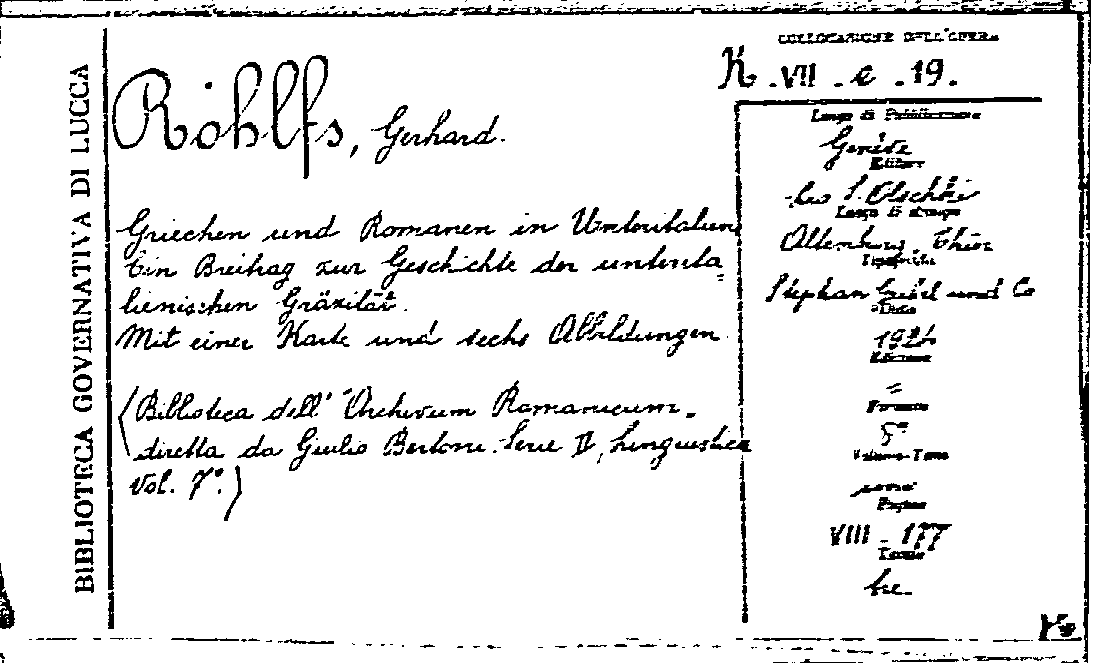 BIBLIOTECA GOVERNATIVA DI LUCCA
COLLOCAZIONE DELL'OPERA
K. VII. e. 19.
Rohlfs, Gerhard.
Griechen und Romanen in Unteritalien
Ein Beitrag zur Geschichte der unterita=
lienischen Gräzität.
Mit einer Karte und sechs Abbildungen
(Biblioteca dell' "Archivum Romanicum"
diretta da Giulio Bertoni. Serie II, Linguistica
Vol. 7°.)
Luogo di Pubblicazione
Genève
Editore
Leo S. Olschki
Luogo di stampa
Altenburg, Thür
Tipografia
Stephan Geibel und Co
Data
1924
Edizione
=
Formato
8°
Volume-Tomo
Pagine
VIII - 177